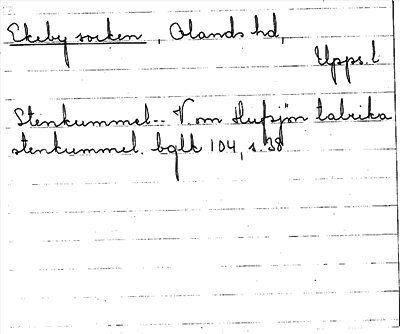 Ekeby socken, Olands hd,
Upps. l
Stenkummel.. V om Hufsjön talrika
stenkummel. bglt 104, s. 38